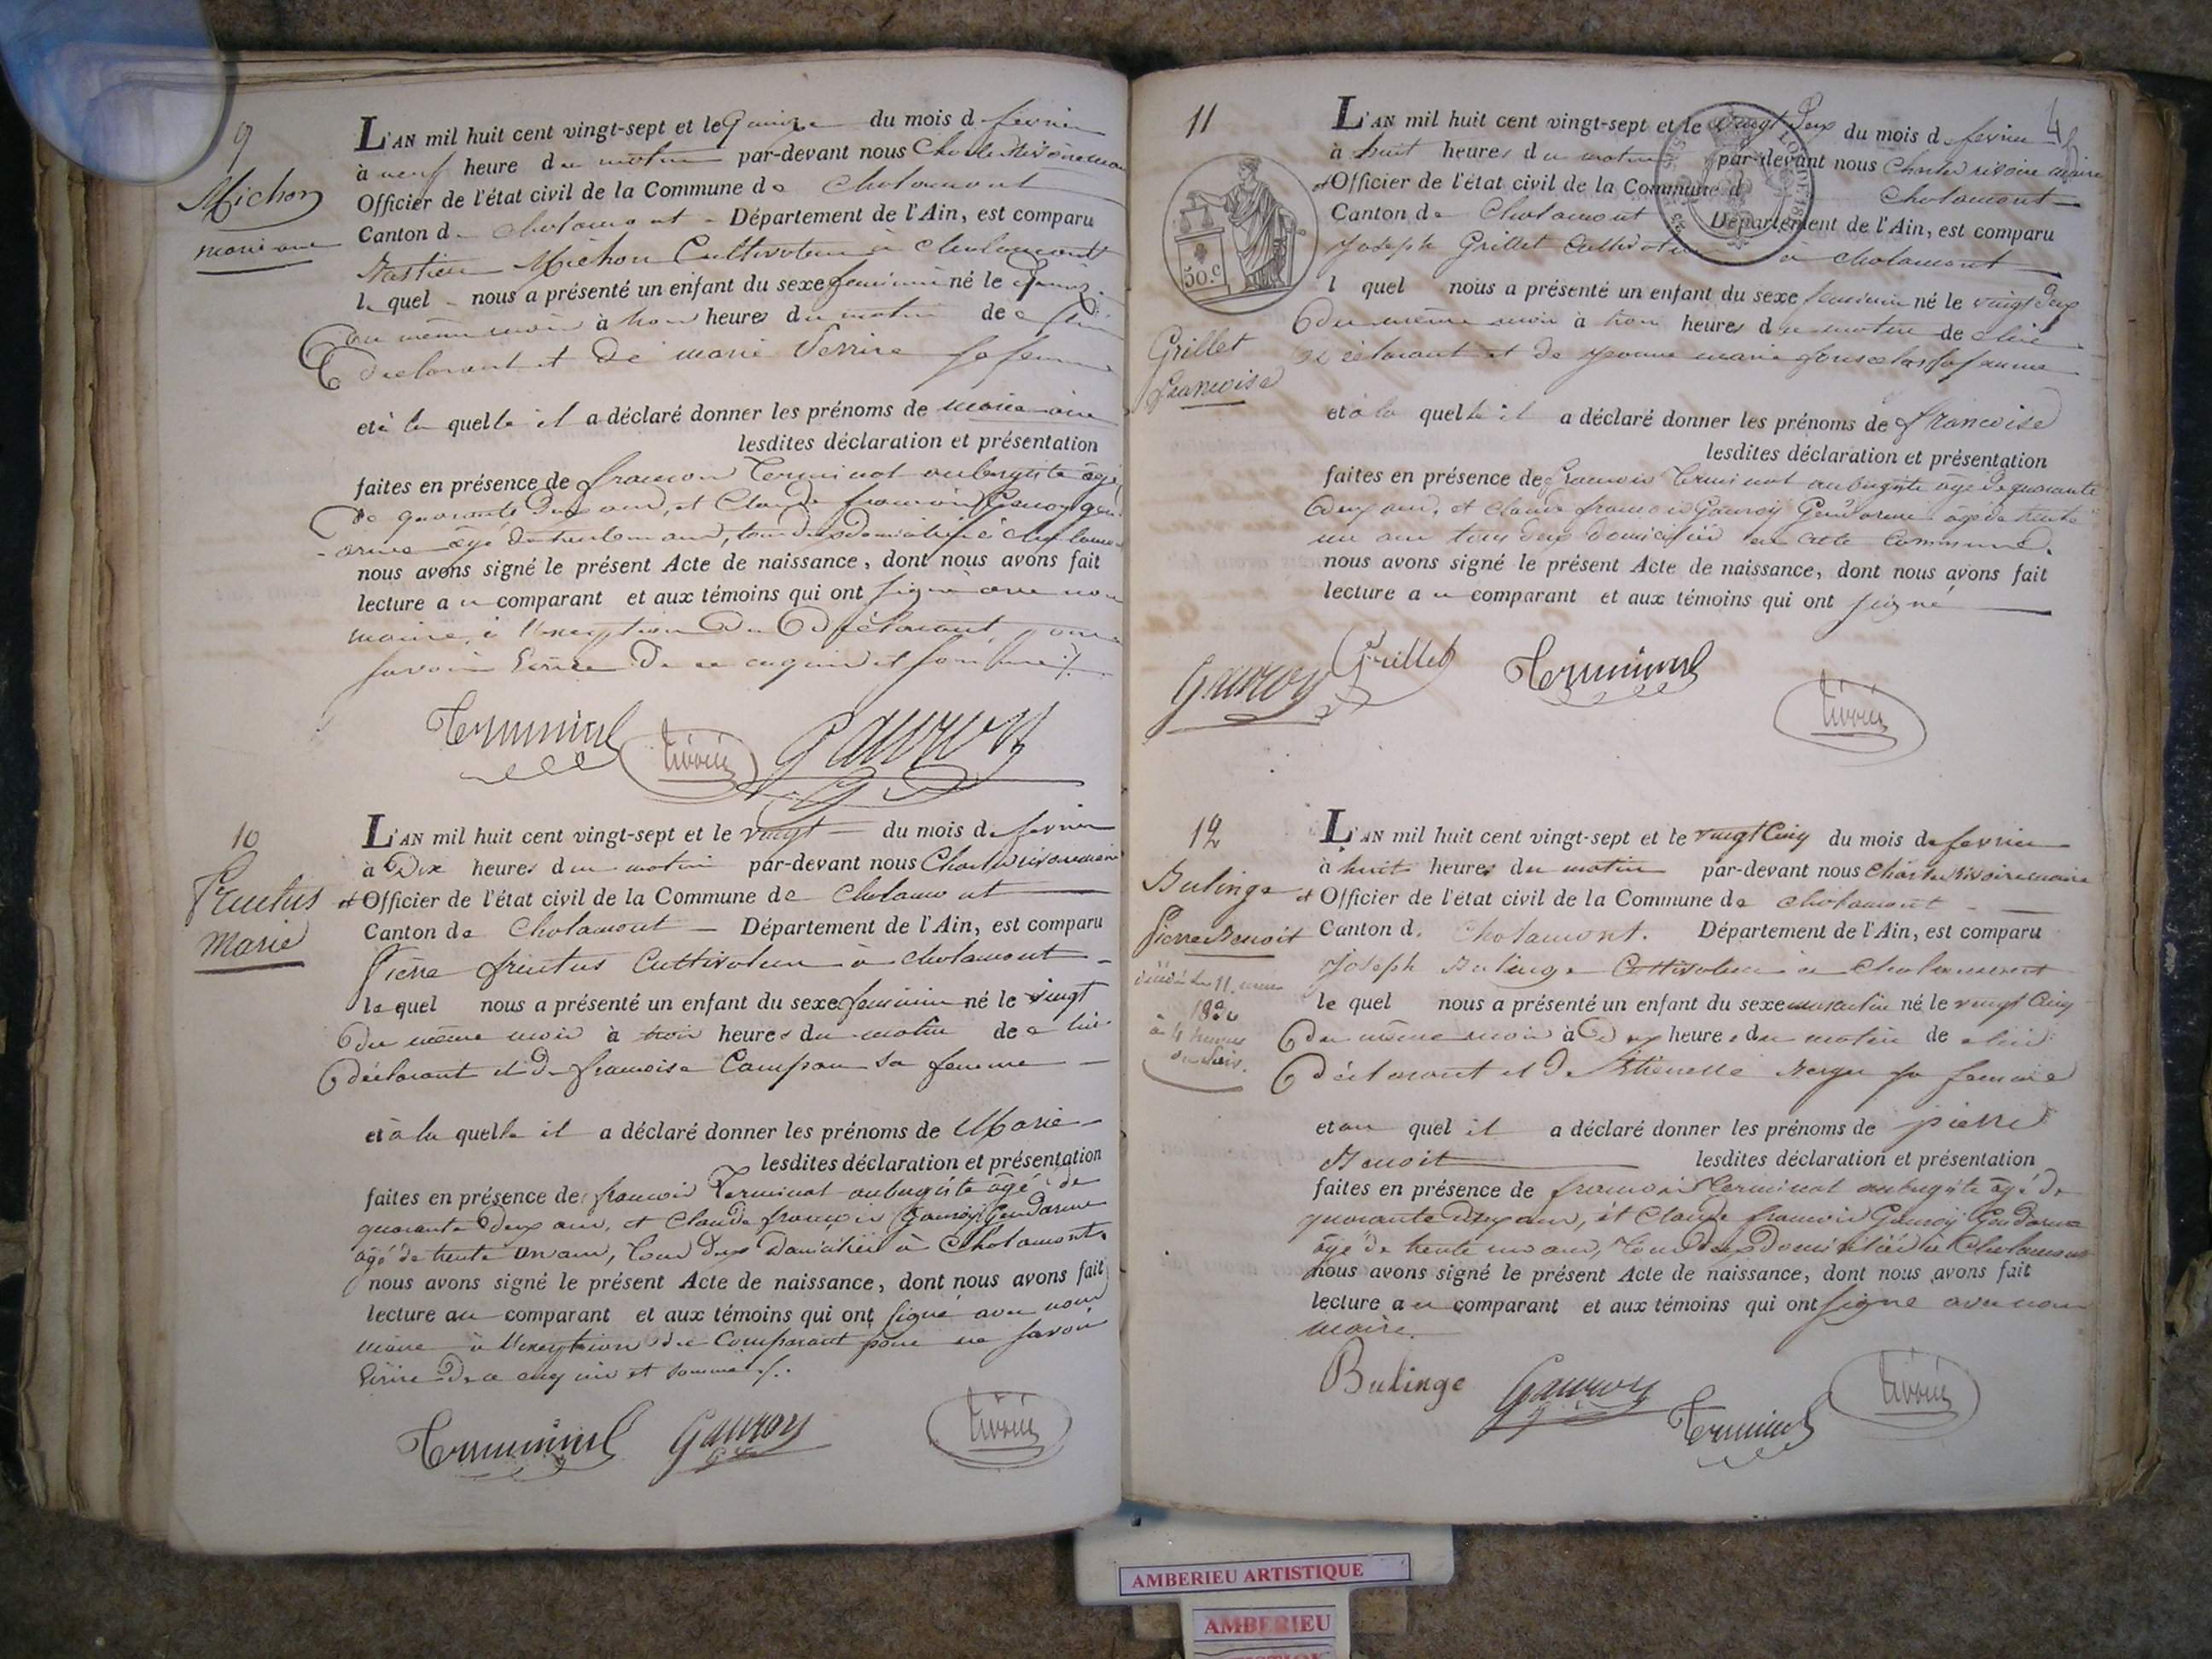 9
Michon
marie ane
L'AN mil huit cent vingt-sept et le quinze du mois de fevrier
à neuf heure du matin par-devant nous Charles rivoire maire
Officier de l'état civil de la Commune de Chalamont
Canton de Chalamont Département de l'Ain, est comparu
Michon Cultivateur à Chalamont
le quel nous a présenté un enfant du sexe feminin né le quinze
du même mois à trois heures du matin de
declarant et de marie sa femme
et à la quelle il a déclaré donner les prénoms de marie ane
lesdites déclaration et présentation
faites en présence de francois Terminal aubergiste âgé
de quarante deux ans, et Claude francois Gauroy gen-
darme âgé de trente un ans, tous deux domiciliés à Chalamont
nous avons signé le présent Acte de naissance, dont nous avons fait
lecture au comparant et aux témoins qui ont signé avec nous
maire, à l'exception du déclarant, pour
savoir écrire de ce enquis et sommé
10
Fructus
Marie
L'AN mil huit cent vingt-sept et le vingt du mois de fevrier
à Dix heures du matin par-devant nous Charles rivoire maire
et Officier de l'état civil de la Commune de Chalamont
Canton de Chalamont Département de l'Ain, est comparu
Pierre fructus Cultivateur à Chalamont
le quel nous a présenté un enfant du sexe feminin né le vingt
du même mois à trois heures du matin de lui
déclarant et de francoise sa femme
et à la quelle il a déclaré donner les prénoms de Marie
lesdites déclaration et présentation
faites en présence de francois Terminal aubergiste âgé de
quarante Deux ans, et Claude francois Gauroy Gendarme
âgé de trente un ans, tous deux Domiciliés à Chalamont.
nous avons signé le présent Acte de naissance, dont nous avons fait
lecture au comparant et aux témoins qui ont signé avec nous
maire à l'exception du Comparant pour ne savoir
écrire de ce enquis et sommé
11
50.c
Grillet
francoise
L'AN mil huit cent vingt-sept et le vingt Deux du mois de fevrier
à huit heures du matin par-devant nous Charles rivoire maire
et Officier de l'état civil de la Commune de Chalamont
Canton de Chalamont Département de l'Ain, est comparu
Joseph Grillet Cultivateur à Chalamont
l quel nous a présenté un enfant du sexe feminin né le vingt Deux
du même mois à trois heures du matin de lui
déclarant et de sa femme
et à la quelle il a déclaré donner les prénoms de francoise
lesdites déclaration et présentation
faites en présence de francois Terminal aubergiste âgé de quarante
deux ans, et Claude francois Gauroy Gendarme âgé de trente
un ans tous deux domiciliés en cette Commune.
nous avons signé le présent Acte de naissance, dont nous avons fait
lecture au comparant et aux témoins qui ont signé
Gauroy Grillet
12
Bulinge
Pierre Benoit
L'AN mil huit cent vingt-sept et le vingt Cinq du mois de fevrier
à huit heures du matin par-devant nous Charles rivoire maire
et Officier de l'état civil de la Commune de Chalamont
Canton d. Chalamont. Département de l'Ain, est comparu
Joseph Bulinge Cultivateur à Chalamont
le quel nous a présenté un enfant du sexe masculin né le vingt Cinq
du même mois à Deux heures du matin de lui
déclarant et de sa femme
et au quel il a déclaré donner les prénoms de pierre
Benoit lesdites déclaration et présentation
faites en présence de francois Terminal aubergiste âgé de
quarante Deux ans, et Claude francois Gauroy Gendarme
âgé de trente un ans, tous deux Domiciliés à Chalamont
nous avons signé le présent Acte de naissance, dont nous avons fait
lecture au comparant et aux témoins qui ont signé avec nous
maire.
Bulinge Gauroy
AMBERIEU ARTISTIQUE
AMBERIEU